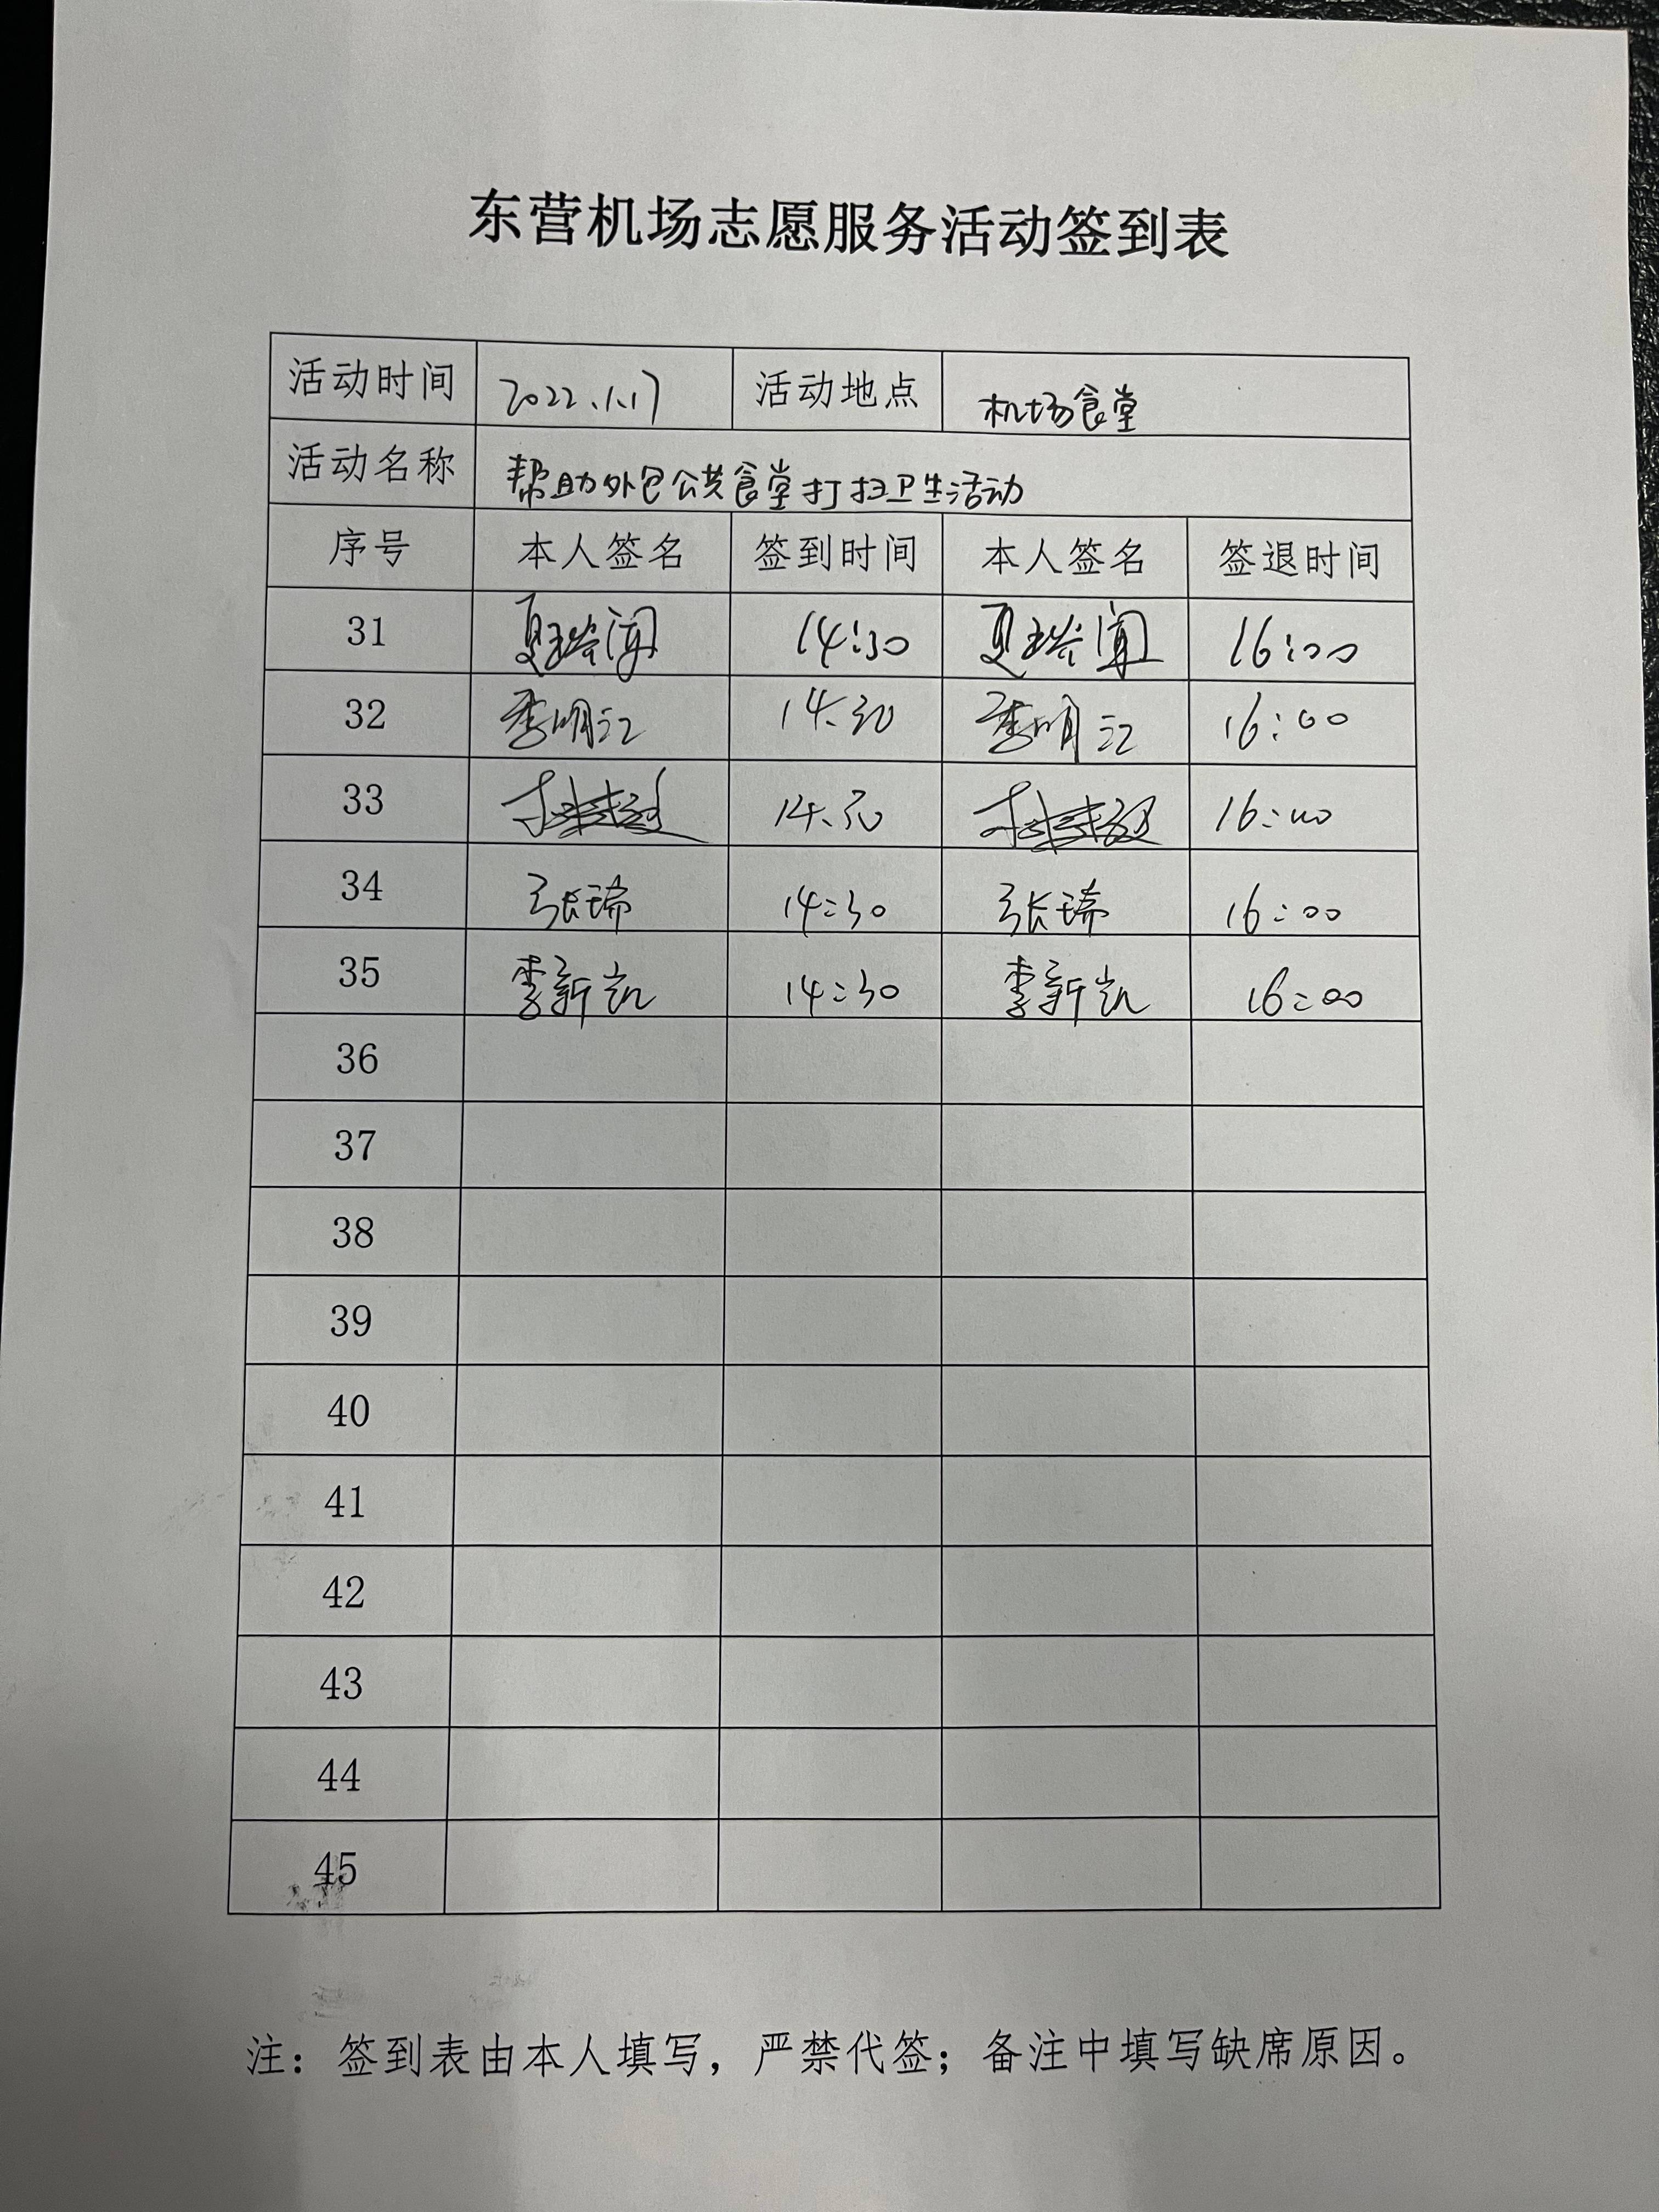 东营机场志愿服务活动签到表
活动时间 2022.1.17 活动地点 机场食堂
活动名称 帮助外包公共食堂打扫卫生活动
序号 本人签名 签到时间 本人签名 签退时间
31 夏瑞闻 14:30 夏瑞闻 16:00
32 李明江 14:30 李明江 16:00
33 14:30 16:00
34 张瑞 14:30 张瑞 16:00
35 李新凯 14:30 李新凯 16:00
36
37
38
39
40
41
42
43
44
45
注：签到表由本人填写，严禁代签；备注中填写缺席原因。